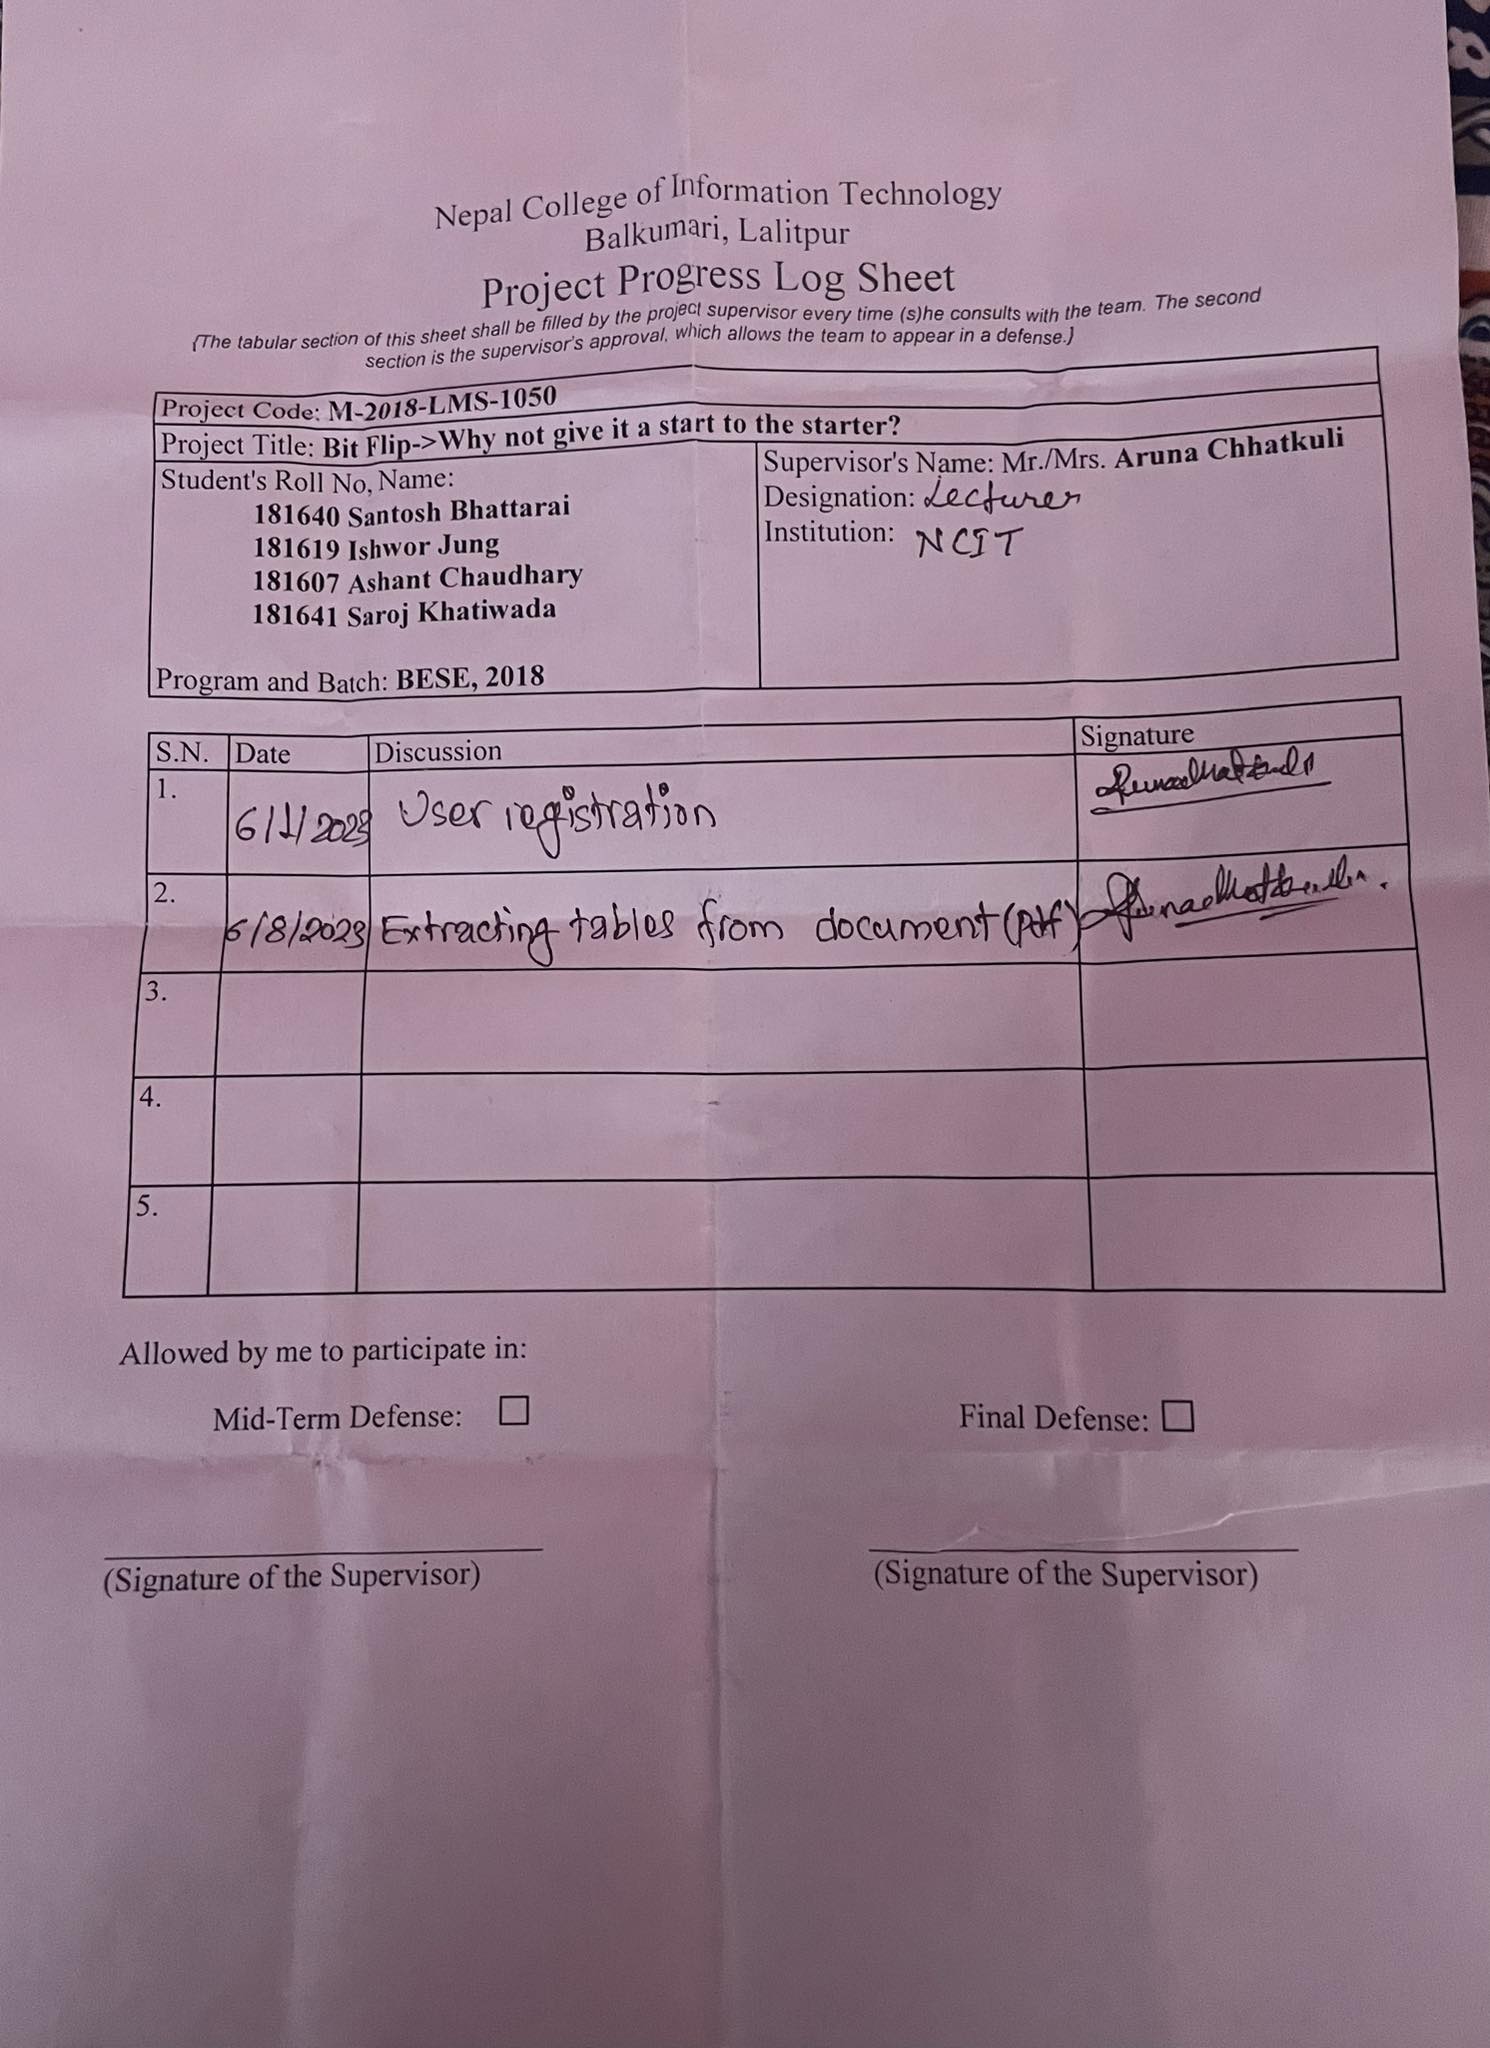 Nepal College of Information Technology
Balkumari, Lalitpur
Project Progress Log Sheet
{The tabular section of this sheet shall be filled by the project supervisor every time (s)he consults with the team. The second
section is the supervisor's approval, which allows the team to appear in a defense.}
Project Code: M-2018-LMS-1050
Project Title: Bit Flip->Why not give it a start to the starter?
Student's Roll No, Name:
181640 Santosh Bhattarai
181619 Ishwor Jung
181607 Ashant Chaudhary
181641 Saroj Khatiwada
Program and Batch: BESE, 2018
Supervisor's Name: Mr./Mrs. Aruna Chhatkuli
Designation: Lecturer
Institution: NCIT
S.N. Date Discussion Signature
1. 6/1/2023 User registration
2. 6/8/2023 Extracting tables from document (pdf)
3.
4.
5.
Allowed by me to participate in:
Mid-Term Defense: Final Defense:
(Signature of the Supervisor) (Signature of the Supervisor)